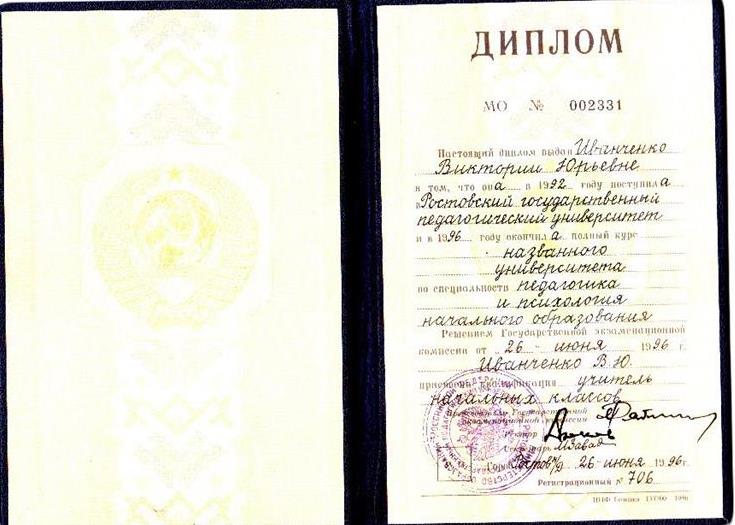 ДИПЛОМ
МО № 002331
Настоящий диплом выдан Иванченко
Виктории Юрьевне
в том, что она в 1992 году поступила
в Ростовский государственный
педагогический университет
и в 1996 году окончила полный курс
названного
университета
по специальности педагогика
и психология
начального образования
Решением Государственной экзаменационной
комиссии от 26 - июня 1996 г.
Иванченко В.Ю.
присвоена квалификация учитель
начальных классов
Председатель Государственной
экзаменационной комиссии
Ректор
Секретарь
Город Ростов н/Д 26 - июня 1996 г.
Регистрационный № 706